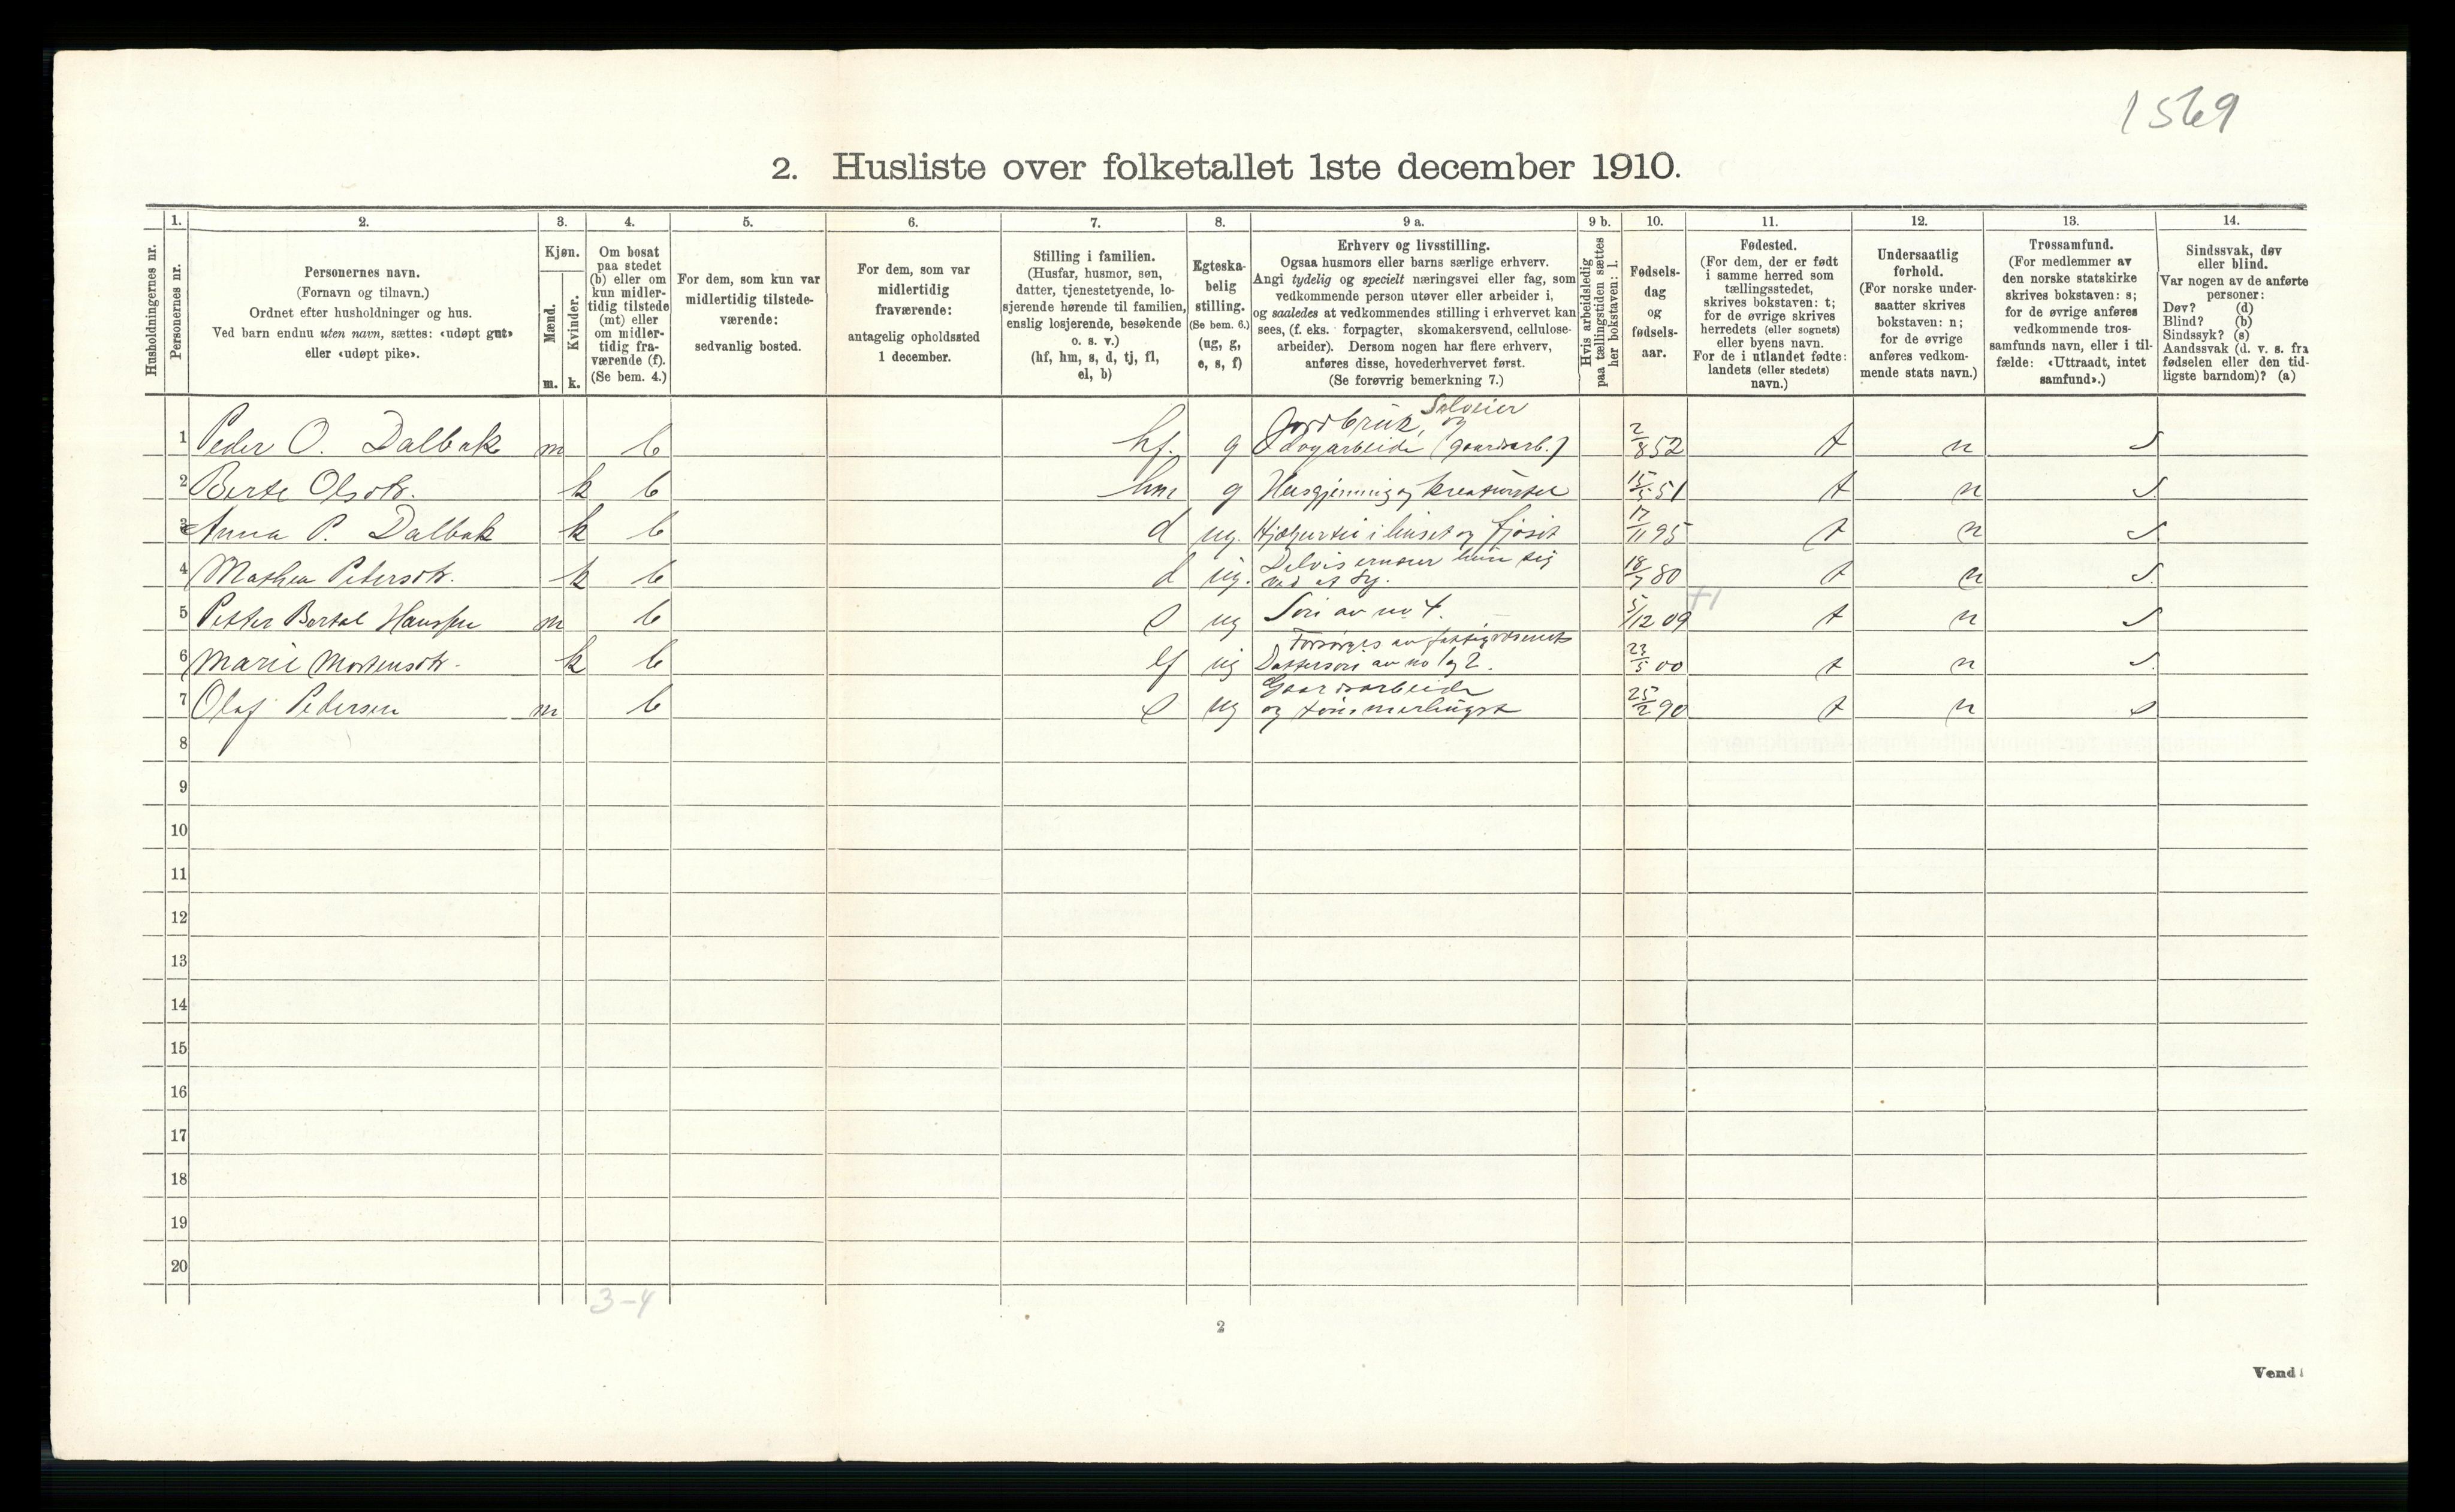 1569
2. Husliste over folketallet 1ste december 1910.
Husholdningernes nr.
1. Personernes nr.
2. Personernes navn.
(Fornavn og tilnavn.)
Ordnet efter husholdninger og hus.
Ved barn endnu uten navn, sættes: «udøpt gut»
eller «udøpt pike».
3. Kjøn.
Mænd. m.
Kvinder. k.
4. Om bosat
paa stedet
(b) eller om
kun midler-
tidig tilstede
(mt) eller
om midler-
tidig fra-
værende (f).
(Se bem. 4.)
5. For dem, som kun var
midlertidig tilstede-
værende:
sedvanlig bosted.
6. For dem, som var
midlertidig
fraværende:
antagelig opholdssted
1 december.
7. Stilling i familien.
(Husfar, husmor, søn,
datter, tjenestetyende, lo-
sjerende hørende til familien,
enslig losjerende, besøkende
o. s. v.)
(hf, hm, s, d, tj, fl,
el, b)
8. Egteska-
belig
stilling.
(Se bem. 6.)
(ug, g,
e, s, f)
9 a. Erhverv og livsstilling.
Ogsaa husmors eller barns særlige erhverv.
Angi tydelig og specielt næringsvei eller fag, som
vedkommende person utøver eller arbeider i,
og saaledes at vedkommendes stilling i erhvervet kan
sees, (f. eks. forpagter, skomakersvend, cellulose-
arbeider). Dersom nogen har flere erhverv,
anføres disse, hovederhvervet først.
(Se forøvrig bemerkning 7.)
9 b. Hvis arbeidsledig
paa tællingstiden sættes
her bokstaven: l.
10. Fødsels-
dag
og
fødsels-
aar.
11. Fødested.
(For dem, der er født
i samme herred som
tællingsstedet,
skrives bokstaven: t;
for de øvrige skrives
herredets (eller sognets)
eller byens navn.
For de i utlandet fødte:
landets (eller stedets)
navn.)
12. Undersaatlig
forhold.
(For norske under-
saatter skrives
bokstaven: n;
for de øvrige
anføres vedkom-
mende stats navn.)
13. Trossamfund.
(For medlemmer av
den norske statskirke
skrives bokstaven: s;
for de øvrige anføres
vedkommende tros-
samfunds navn, eller i til-
fælde: «Uttraadt, intet
samfund».)
14. Sindssvak, døv
eller blind.
Var nogen av de anførte
personer:
Døv? (d)
Blind? (b)
Sindssyk? (s)
Aandssvak (d. v. s. fra
fødselen eller den tid-
ligste barndom)? (a)
Selveier
1 Peder O. Dalbak m b hf. g Jordbruk, og dagarbeide (gaardsarb.) 2/8 52 t n s
2 Berte Olsdtr. k b hm g Husgjerning og kreaturstel 15/5 51 t n s
3 Anna P. Dalbak k b d ug. i huset og fjøset 17/11 95 t n s
4 Mathea Pedersdtr. k b d ug. Delvis ernærer hun sig
ved at sy. 18/7 80 t n s
5 Petter Bertol Hanssen m b s ug Søn av no 4. 5/12 09 t n s
6 Marie Mortensdtr. k b lf ug Forsørges av fattigvæsenet
av no 1 og 2. 23/5 00 t n s
7 Olaf Pedersen m b s ug Gaardsarbeide
og tømmerhugst 25/2 90 t n s
8
9
10
11
12
13
14
15
16
17
18
19
20
3-4
2
Vend!